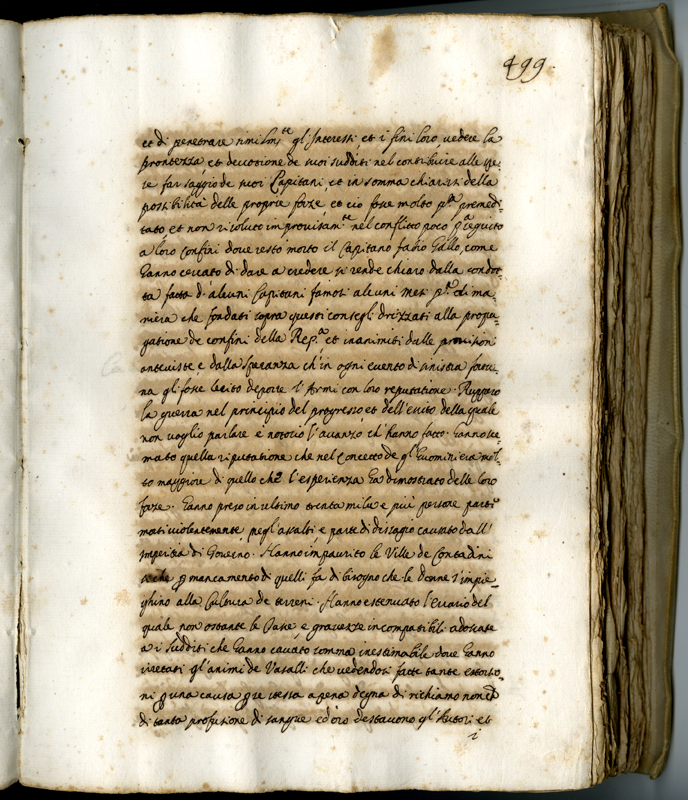 499.
et di penetrare simil.mte gl'Interessi, et i fini loro, vedere la
prontezza, et devotione de suoi sudditi nel contribuire alle spe,,
se far saggio de suoi Capitani, et in somma chiarirsi della
possibilità delle proprie forze, et ciò fosse molto pª premedi,,
tato, et non risoluto improvisam.te nel conflitto poco pª seguito
a loro confini dove restò morto il Capitano fabio Gallo, come
hanno cercato di dare a credere si rende chiaro dalla condot,,
ta fatta d'alcuni Capitani famosi alcuni mesi pª di ma,,
niera che fondati sopra questi consegli drizzati alla propu,,
gatione de confini della Rep.ª et inanimiti dalle provisioni
anteviste, e dalla speranza ch'in ogni evento di sinistra fortu,,
na gli fosse lecito deporre l'Armi con loro reputatione. Ruppero
la guerra nel principio del progresso, et dell'exito della quale
non voglio parlare è notorio l'avanzo, ch'hanno fatto. hanno sce,,
mato quella riputatione che nel concetto de gl'huomini era mol,,
to maggiore di quello che l'esperienza ha dimostrato delle loro
forze. hanno perso in ultimo trenta mila e più persone parti
morti violentemente, negl'assalti, e parte di disagio causato dall'
imperitia di Governo. Hanno impaurito le Ville de Contadini
che ꝑ mancamento di quelli fa di bisogno che le donne s'impie,,
ghino alla Cultura de terreni. Hanno estenuato l'Erario del
quale non ostante le Tasse, e gravezze incompatibili adossate
a i sudditi che hanno cavato somma inestimabile dove hanno
irritati gl'animi de Vasalli che vedendosi fatte tante estorsio,,
ni ꝑ una causa ꝑ se stessa apena degna di richiamo non che
di tanta profusione di sangue ed'oro detestavono gl'Autori et
i